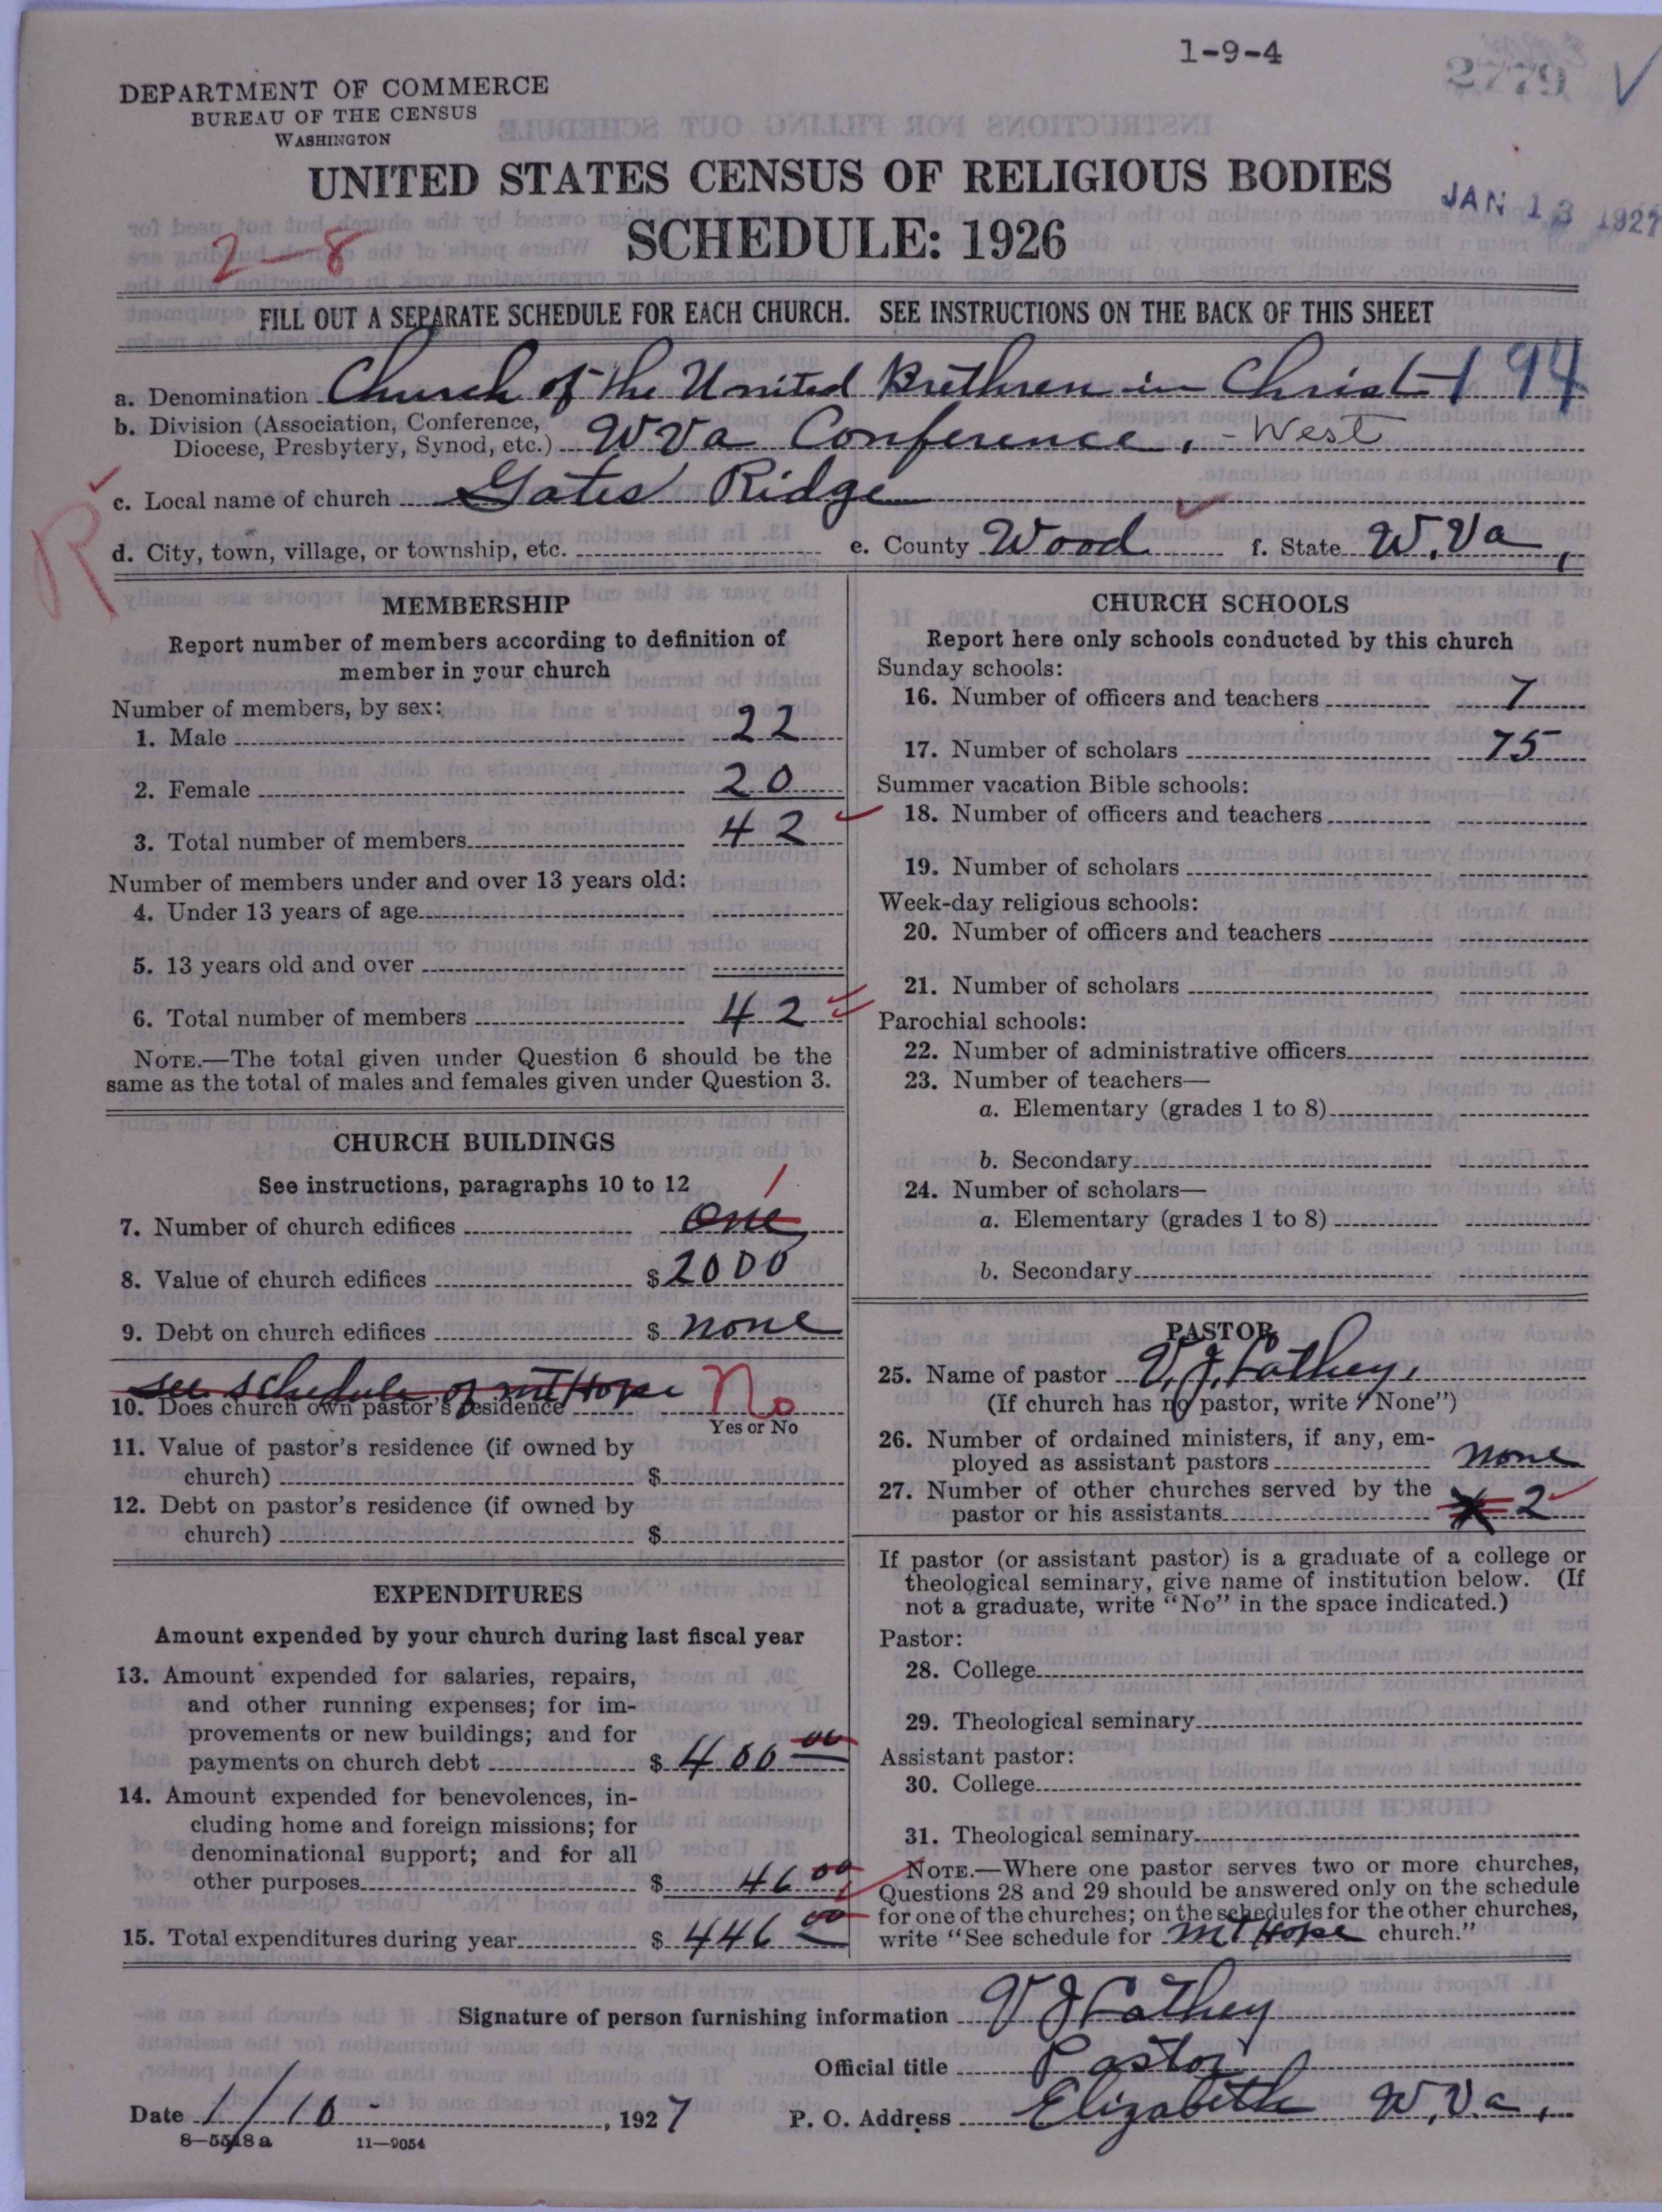 1-9-4
2779
DEPARTMENT OF COMMERCE
BUREAU OF THE CENSUS
WASHINGTON
UNITED STATES CENSUS OF RELIGIOUS BODIES
SCHEDULE: 1926
JAN 13 1927
2-8
FILL OUT A SEPARATE SCHEDULE FOR EACH CHURCH. SEE INSTRUCTIONS ON THE BACK OF THIS SHEET
a. Denomination Church of the United Brethren in Christ 194
b. Division (Association, Conference,
Diocese, Presbytery, Synod, etc.) W Va Conference, - West
c. Local name of church Gates Ridge
R
d. City, town, village, or township, etc. e. County Wood f. State W. Va,
MEMBERSHIP
Report number of members according to definition of
member in your church
Number of members, by sex:
1. Male 22
2. Female 20
3. Total number of members 42
Number of members under and over 13 years old:
4. Under 13 years of age
5. 13 years old and over
6. Total number of members 42
NOTE.—The total given under Question 6 should be the
same as the total of males and females given under Question 3.
CHURCH BUILDINGS
See instructions, paragraphs 10 to 12
7. Number of church edifices one 1
8. Value of church edifices $ 2000
9. Debt on church edifices $ none
see schedule of mt Hope
10. Does church own pastor's residence No
Yes or No
11. Value of pastor's residence (if owned by
church) $
12. Debt on pastor's residence (if owned by
church) $
EXPENDITURES
Amount expended by your church during last fiscal year
13. Amount expended for salaries, repairs,
and other running expenses; for im-
provements or new buildings; and for
payments on church debt $ 400 00
14. Amount expended for benevolences, in-
cluding home and foreign missions; for
denominational support; and for all
other purposes $ 46 00
15. Total expenditures during year $ 446 00
CHURCH SCHOOLS
Report here only schools conducted by this church
Sunday schools:
16. Number of officers and teachers 7
17. Number of scholars 75
Summer vacation Bible schools:
18. Number of officers and teachers
19. Number of scholars
Week-day religious schools:
20. Number of officers and teachers
21. Number of scholars
Parochial schools:
22. Number of administrative officers
23. Number of teachers—
a. Elementary (grades 1 to 8)
b. Secondary
24. Number of scholars—
a. Elementary (grades 1 to 8)
b. Secondary
PASTOR
25. Name of pastor V. J. Cathey,
(If church has no pastor, write "None")
26. Number of ordained ministers, if any, em-
ployed as assistant pastors none
27. Number of other churches served by the
pastor or his assistants 2
If pastor (or assistant pastor) is a graduate of a college or
theological seminary, give name of institution below. (If
not a graduate, write "No" in the space indicated.)
Pastor:
28. College
29. Theological seminary
Assistant pastor:
30. College
31. Theological seminary
NOTE.—Where one pastor serves two or more churches,
Questions 28 and 29 should be answered only on the schedule
for one of the churches; on the schedules for the other churches,
write "See schedule for mt Hope church."
Signature of person furnishing information V J Cathey
Official title Pastor
Date 1/10 -, 1927 P. O. Address Elizabeth W. Va,
8-5518a 11-9054